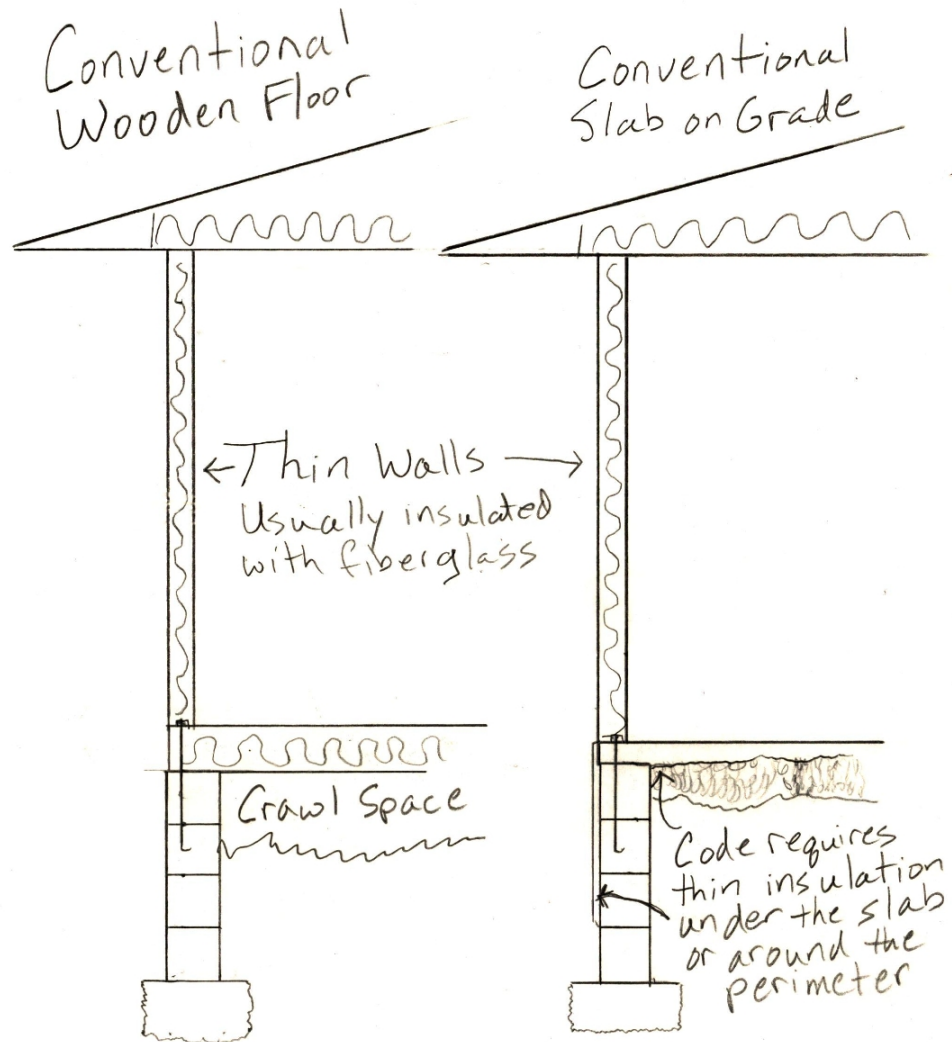 Conventional
Wooden Floor
Conventional
Slab on Grade
Thin Walls
Usually insulated
with fiberglass
Crawl Space
Code requires
thin insulation
under the slab
or around the
perimeter